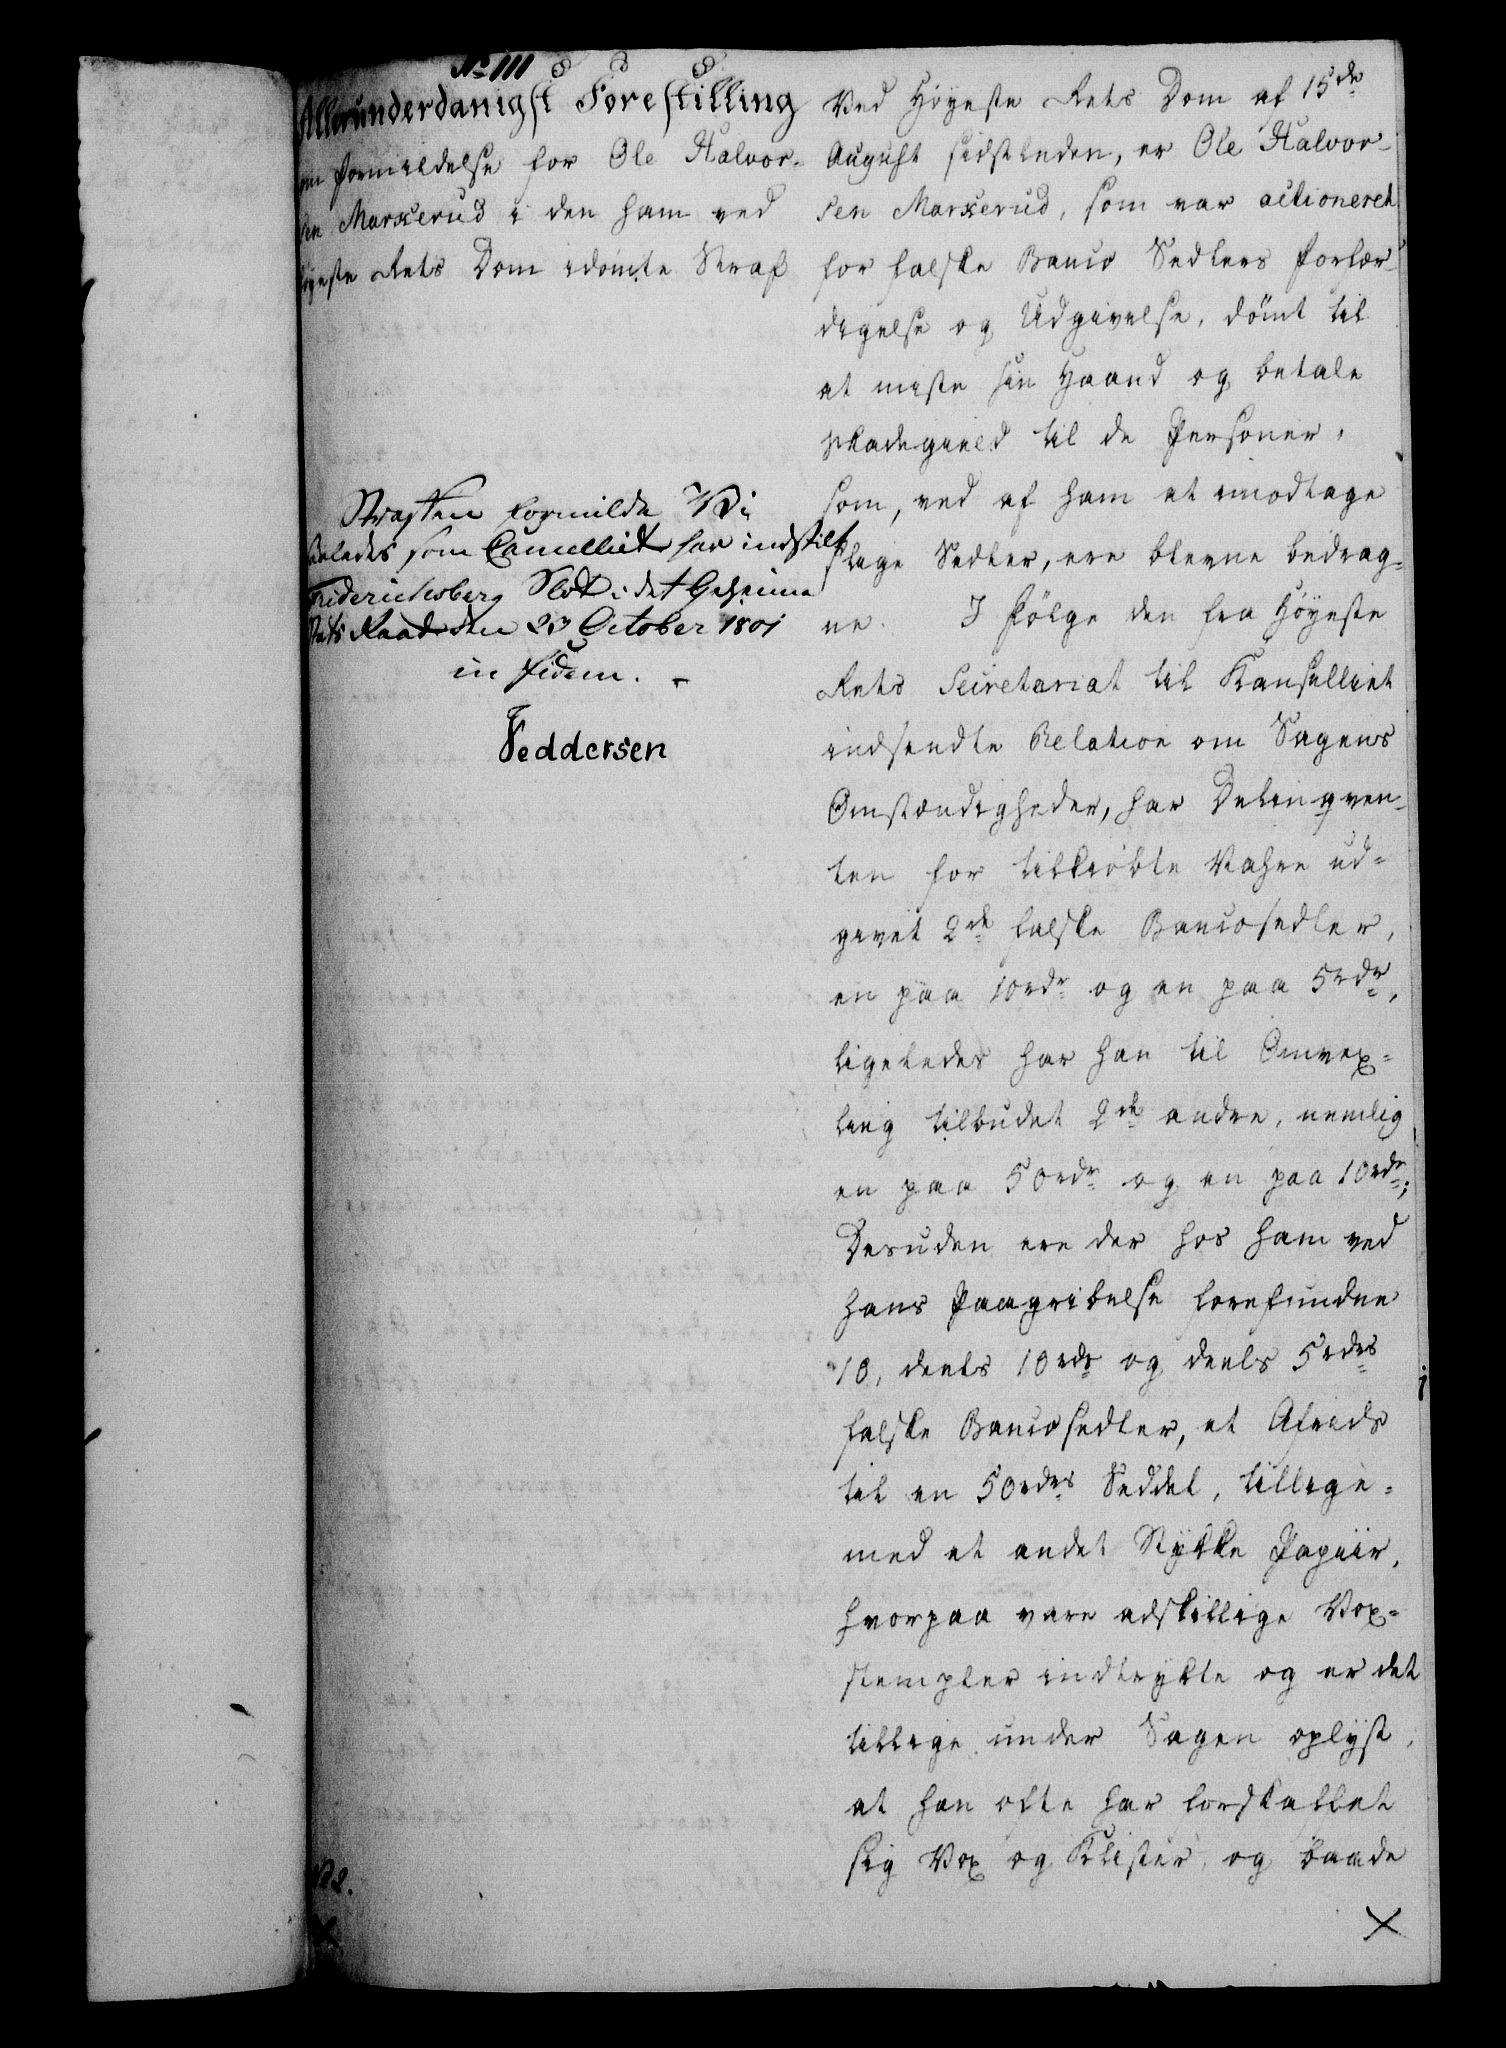 No 111
Allerunderdanigst Forestilling
om Formildelse for Ole Halvor-
sen Marxerud i den ham ved
Høyeste Rets Dom idømte Straf
Straffen formilde Vi
saaledes som Cancelliet har indstilt
Friderichsberg Slot i det Geheime
Stats Raad den 23 October 1801
in fidem.
Feddersen
Ved Høyeste Rets Dom af 15de
August sidstleden, er Ole Halvor-
sen Marxerud, som var actioneret
for falske Banco Sedlers Forfær-
digelse og Udgivelse, dömt til
at miste sin Haand og betale
Skadegield til de Personer,
som, ved af ham at imodtage
slige Sedler, ere blevne bedrag-
ne. I Fölge den fra Höyeste
Rets Secretariat til Kanselliet
indsendte Relation om Sagens
Omstændigheder, har Delinqven-
ten for tilkiöbte Vahre ud-
givet 2de falske Bancosedler,
en paa 10rdr og en paa 5rdr,
ligeledes har han til Omvex-
ling tilbudet 2de andre, nemlig
en paa 50rdr og en paa 10rdr;
Desuden ere der hos ham ved
hans Paagribelse forefundne
10, deels 10rdr og deels 5rdrs
falske Bancosedler, et Afrids
til en 50rdrs Seddel, tillige-
med et andet Stykke Papiir,
hvorpaa vare adskillige Vox-
stempler indtrykte og er det
tillige under Sagen oplyst,
at han ofte har forskaffet
sig Vox og Klister, og baade